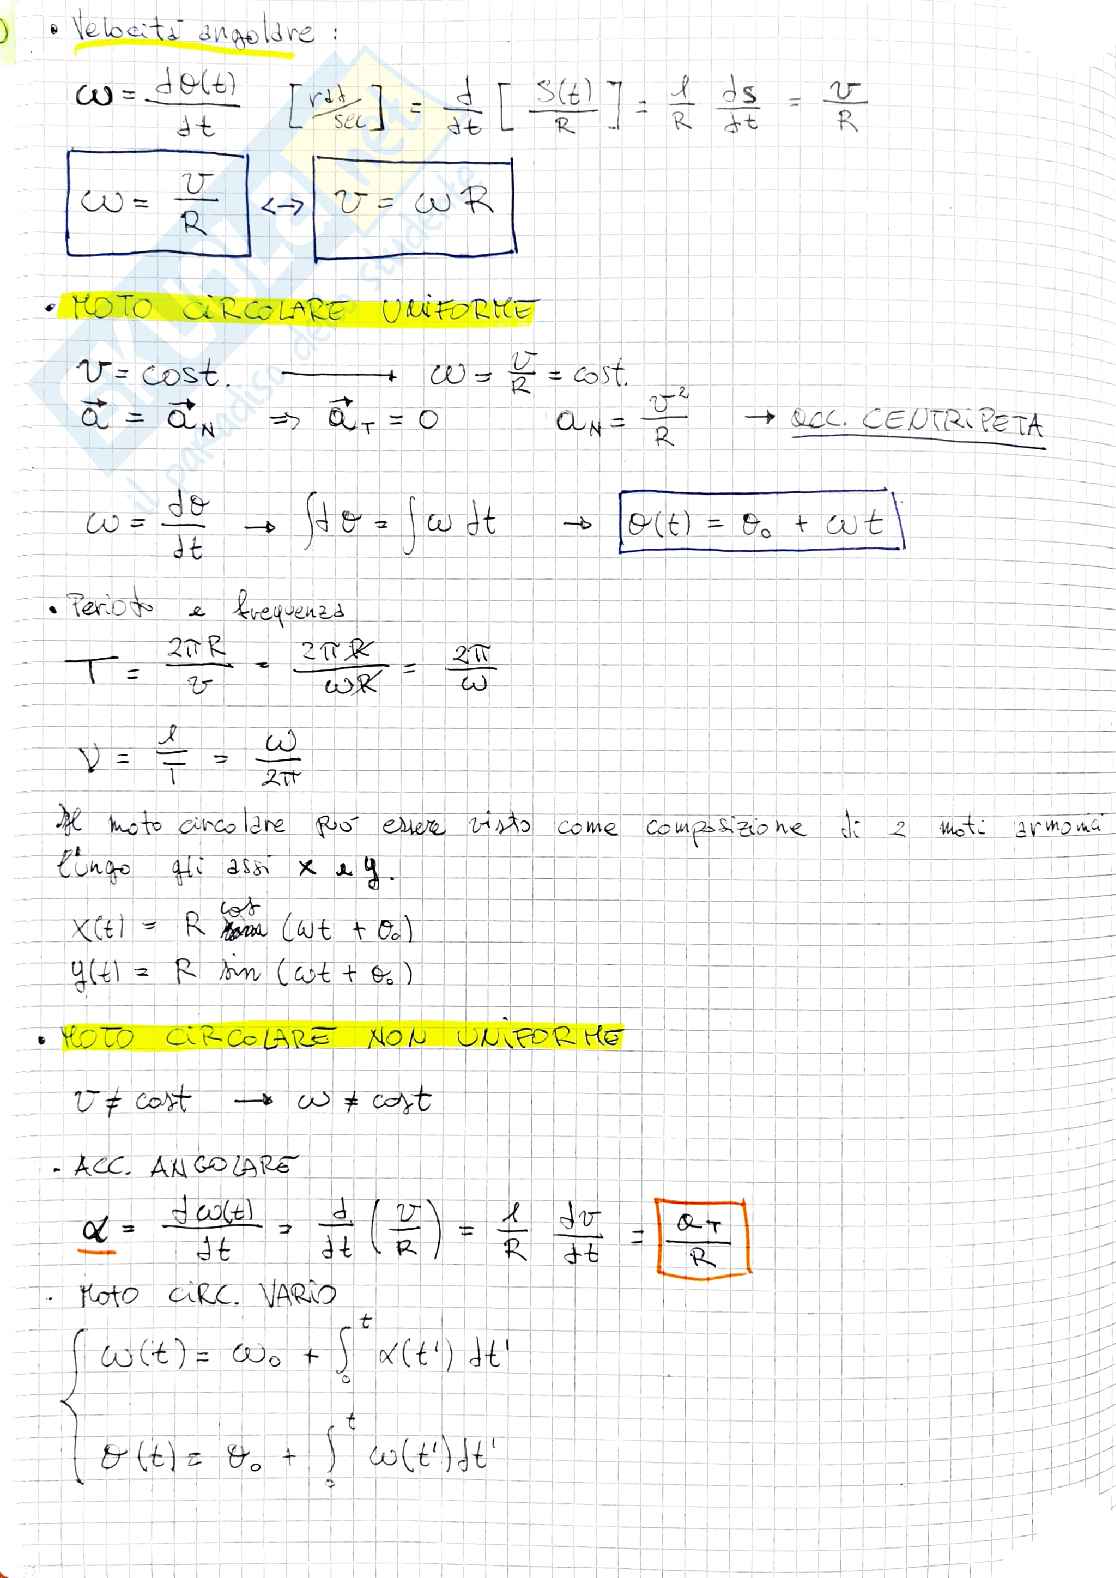 • Velocità angolare :
ω = dθ(t)/dt [rad/sec] = d/dt [S(t)/R] = 1/R ds/dt = v/R
ω = v/R <-> v = ωR
• MOTO CIRCOLARE UNIFORME
v = cost. → ω = v/R = cost.
a⃗ = a⃗_N => a⃗_T = 0 a_N = v²/R → acc. CENTRIPETA
ω = dθ/dt → ∫dθ = ∫ω dt → θ(t) = θ₀ + ωt
• Periodo e frequenza
T = 2πR/v = 2πR/ωR = 2π/ω
ν = 1/T = ω/2π
Il moto circolare può essere visto come composizione di 2 moti armonici
lungo gli assi x e y.
x(t) = R cos (ωt + θ₀)
y(t) = R sin (ωt + θ₀)
• MOTO CIRCOLARE NON UNIFORME
v ≠ cost → ω ≠ cost
- ACC. ANGOLARE
α = dω(t)/dt = d/dt (v/R) = 1/R dv/dt = a_T/R
· MOTO CIRC. VARIO
ω(t) = ω₀ + ∫₀ᵗ α(t') dt'
θ(t) = θ₀ + ∫₀ᵗ ω(t') dt'
SKUOLA.net
il paradiso dello studente